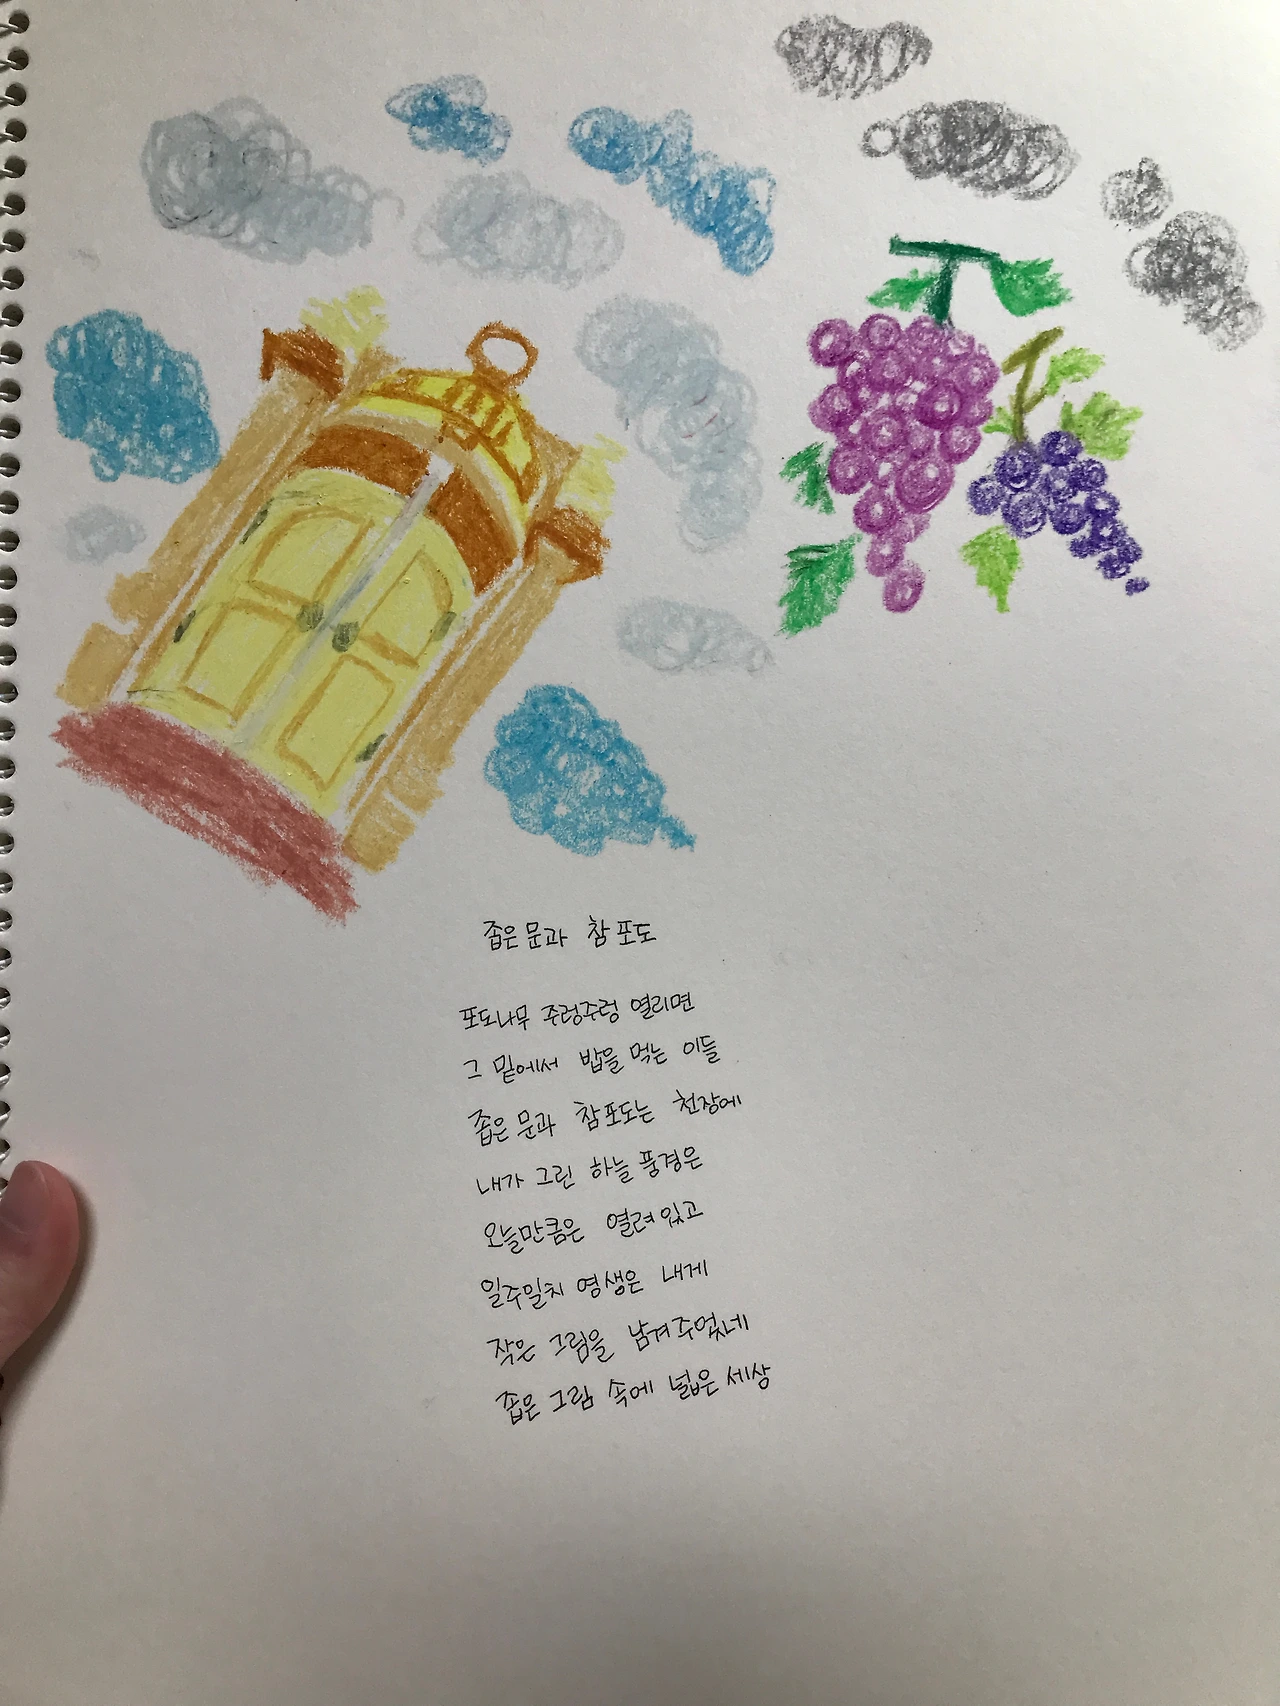 좁은 문과 참 포도
포도나무 주렁주렁 열리면
그 밑에서 밥을 먹는 이들
좁은 문과 참 포도는 천장에
내가 그린 하늘 풍경은
오늘만큼은 열려 있고
일주일치 영생은 내게
작은 그림을 남겨 주었네
좁은 그림 속에 넓은 세상